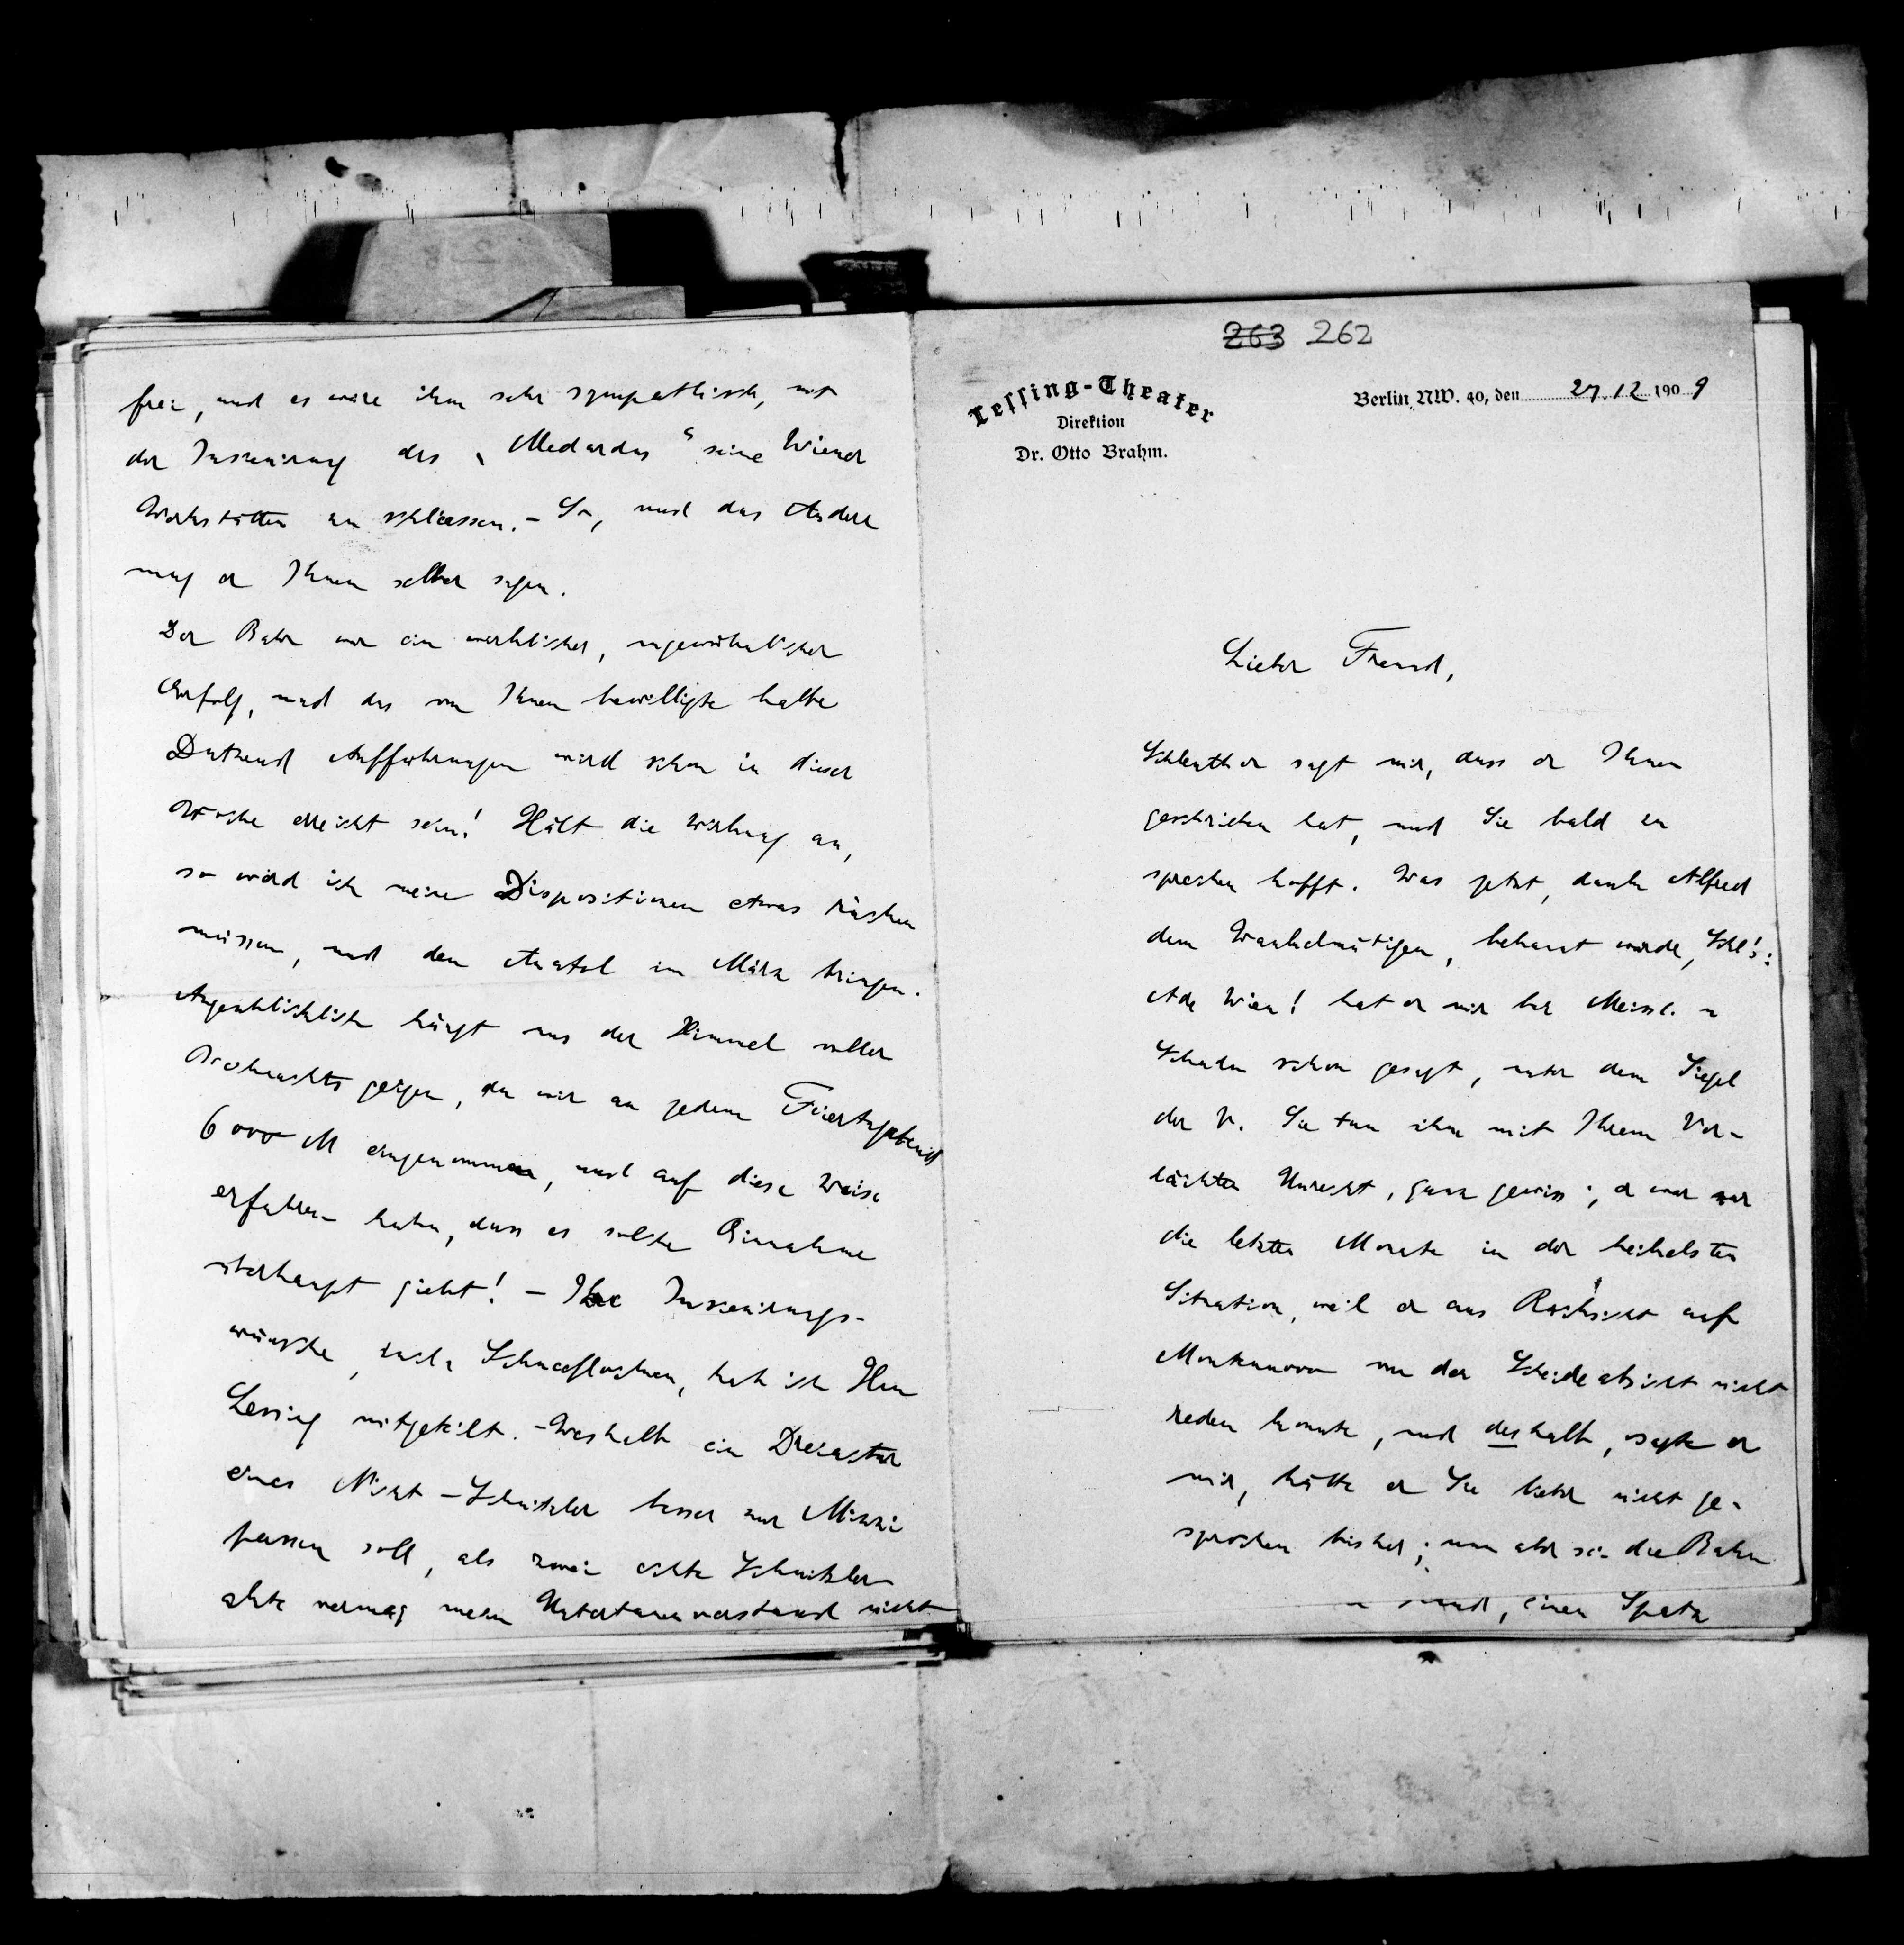 263 262
Lessing-Theater
Direktion
Dr. Otto Brahm.
Berlin NW. 40, den 27.12.1909
Lieber Freund,
Schlenther sagt mir, dass er Ihnen
geschrieben hat, und Sie bald zu
sprechen hofft. Was jetzt, dank Alfred
dem Wankelmütigen, bekannt wurde, Schl's:
Ade Wien! hat er mir bei Meissl. u
Schadn schon gesagt, unter dem Siegel
der V. Sie tun ihm mit Ihrem Ver-
dachte Unrecht, ganz gewiss; er war nur
die letzten Monate in der heikelsten
Situation, weil er aus Rücksicht auf
Montenuovo von der Scheideabsicht nicht
reden konnte, und deshalb, sagte er
mir, hätte er Sie lieber nicht ge-
sprochen bisher; nun aber sei die Bahn
einen Spatz
frei, und es wäre ihm sehr sympathisch, mit
der Inszenirung des „Medardus“ seine Wiener
Werkstätten zu schliessen. – So, und das Andere
mag er Ihnen selber sagen.
Der Bahr war ein merklicher, ungewöhnlicher
Erfolg, und das von Ihnen bewilligte halbe
Dutzend Aufführungen wird schon in dieser
Woche erreicht sein! Hält die Wirkung an,
so werd ich meine Dispositionen etwas rücken
müssen, und den Anatol im März bringen.
Augenblicklich hängt uns der Himmel voller
Weihnachtsgeigen, da wir an jedem Feiertagabend
6000 M eingenommen, und auf diese Weise
erfahren haben, dass es solche Einnahme
überhaupt giebt! – Ihre Inszenirungs-
wünsche, Schneeflocken, hab ich Herrn
Lessing mitgeteilt. – Weshalb ein Dreiakter
eines Nicht-Schnitzler besser zur Mizzi
passen soll, als zwei echte Schnitzler-
akte vermag mein Untertanenverstand nicht